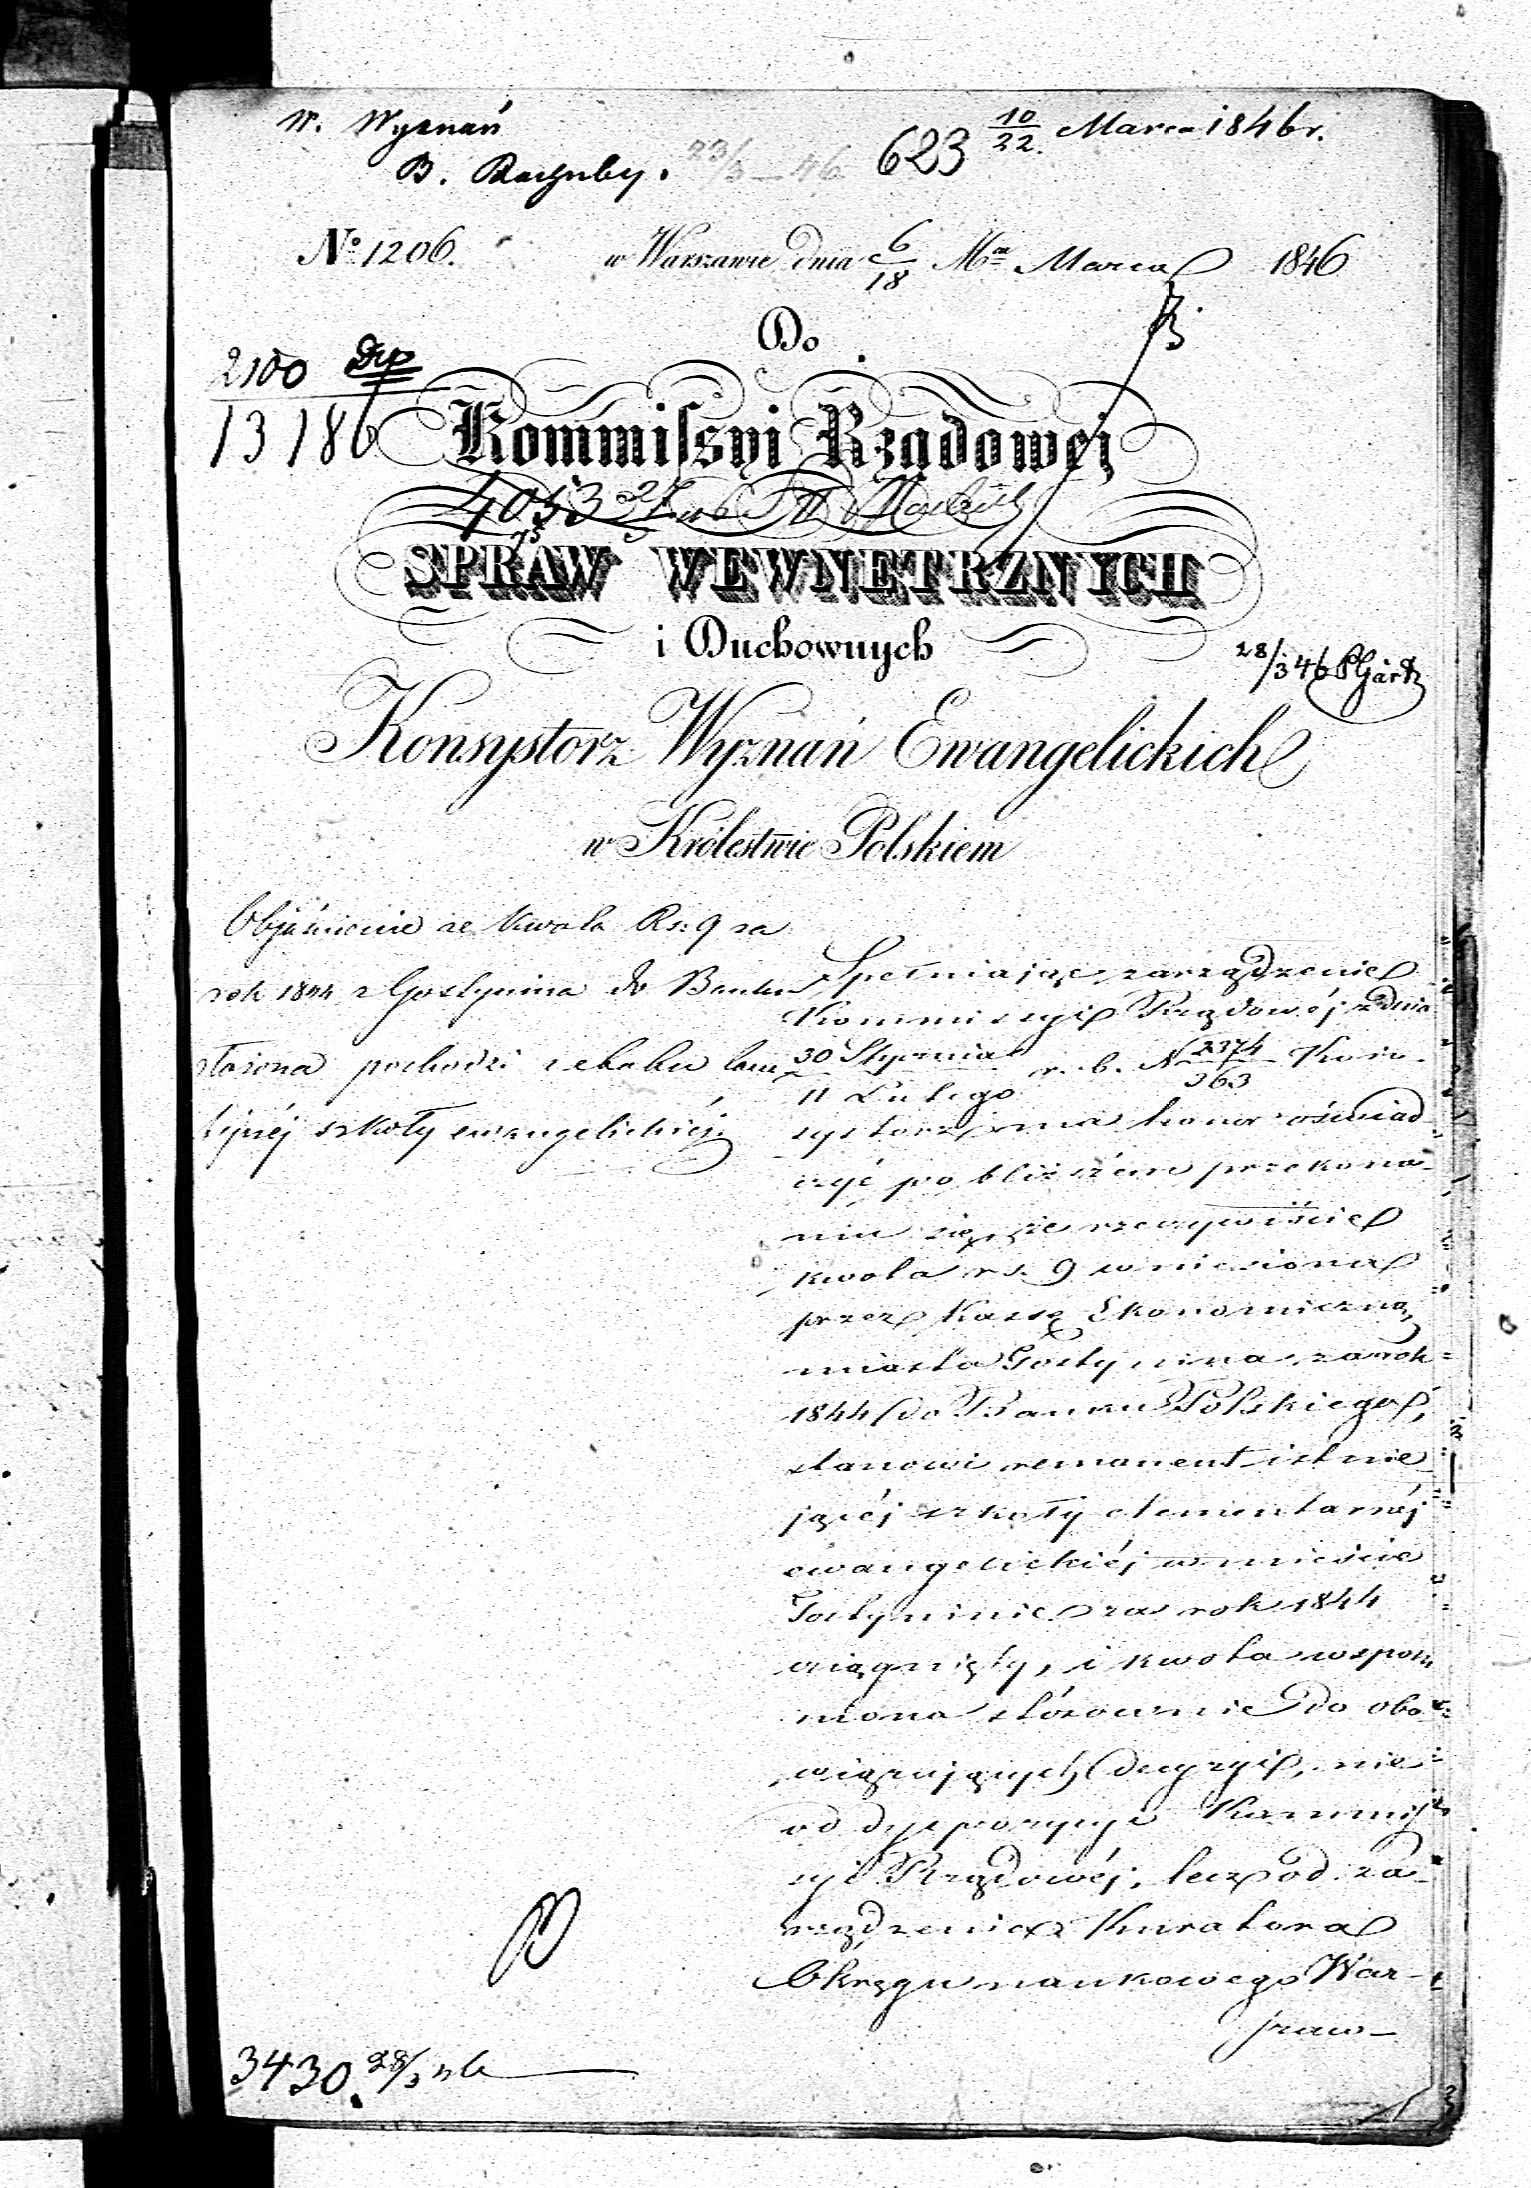 W. Wyznań
B. Rachuby. 23/3 – 46 623 10/22. Marca 1846 r.
No 1206. w Warszawie dnia 6/18 Mca Marca 1846
Do
2100
13186
Kommissyi Rządowej
SPRAW WEWNĘTRZNYCH
i Duchownych
28/3 46 PGärtz
Konsystorz Wyznań Ewangelickich
w Królestwie Polskiem
Objaśnienie że kwota Rs: 9 za
rok 1844 z Gostynina do Banku
złożona pochodzi z etatu tam
tejszéj szkoły ewangelickiéj.
Spełniając zarządzenie
Kommissyi Rządowéj z dnia
30 Stycznia / 11 Lutego r. b. N 2374/363 Kon-
systorz ma honor oświad
czyć po bliższém przekona-
niu się, że rzeczywiście
kwota rs. 9 wniesiona
przez Kassę Ekonomiczną
miasta Gostynina za rok
1844 do Banku Polskiego,
stanowi remanent istnie
jącéj szkoły elementarnéj
ewangelickiéj w mieście
Gostyninie za rok 1844
ciągnięty, i kwota wspom
niona stósownie do obo-
wiązujących decyzyi, nie
od dyspozycyi Kommis
syi Rządowéj, lecz od za-
rządzenia Kuratora
Okręgu naukowego War-
szaw-
3430. 28/3